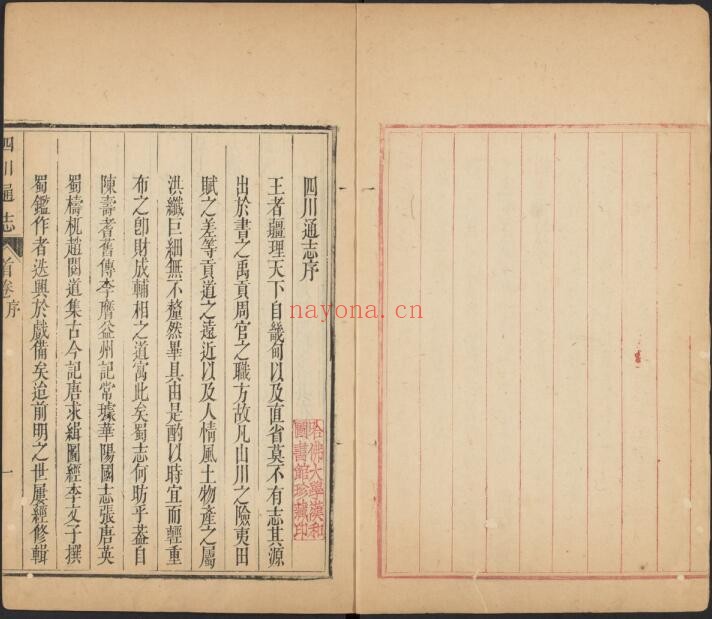 四川通志序
王者疆理天下自畿甸以及直省莫不有志其源
出於書之禹貢周官之職方故凡山川之險夷田
賦之差等貢道之遠近以及人情風土物產之屬
洪纖巨細無不釐然畢具由是酌以時宜而輕重
布之卽財成輔相之道寓此矣蜀志何昉乎葢自
陳壽耆舊傳李膺益州記常璩華陽國志張唐英
蜀檮杌趙閱道集古今記唐求緝圖經李文子撰
蜀鑑作者迭興於戲備矣迨前明之世屢經修輯
四川通志
首卷 序
一
哈佛大學漢和
圖書館珍藏印
nayona.cn